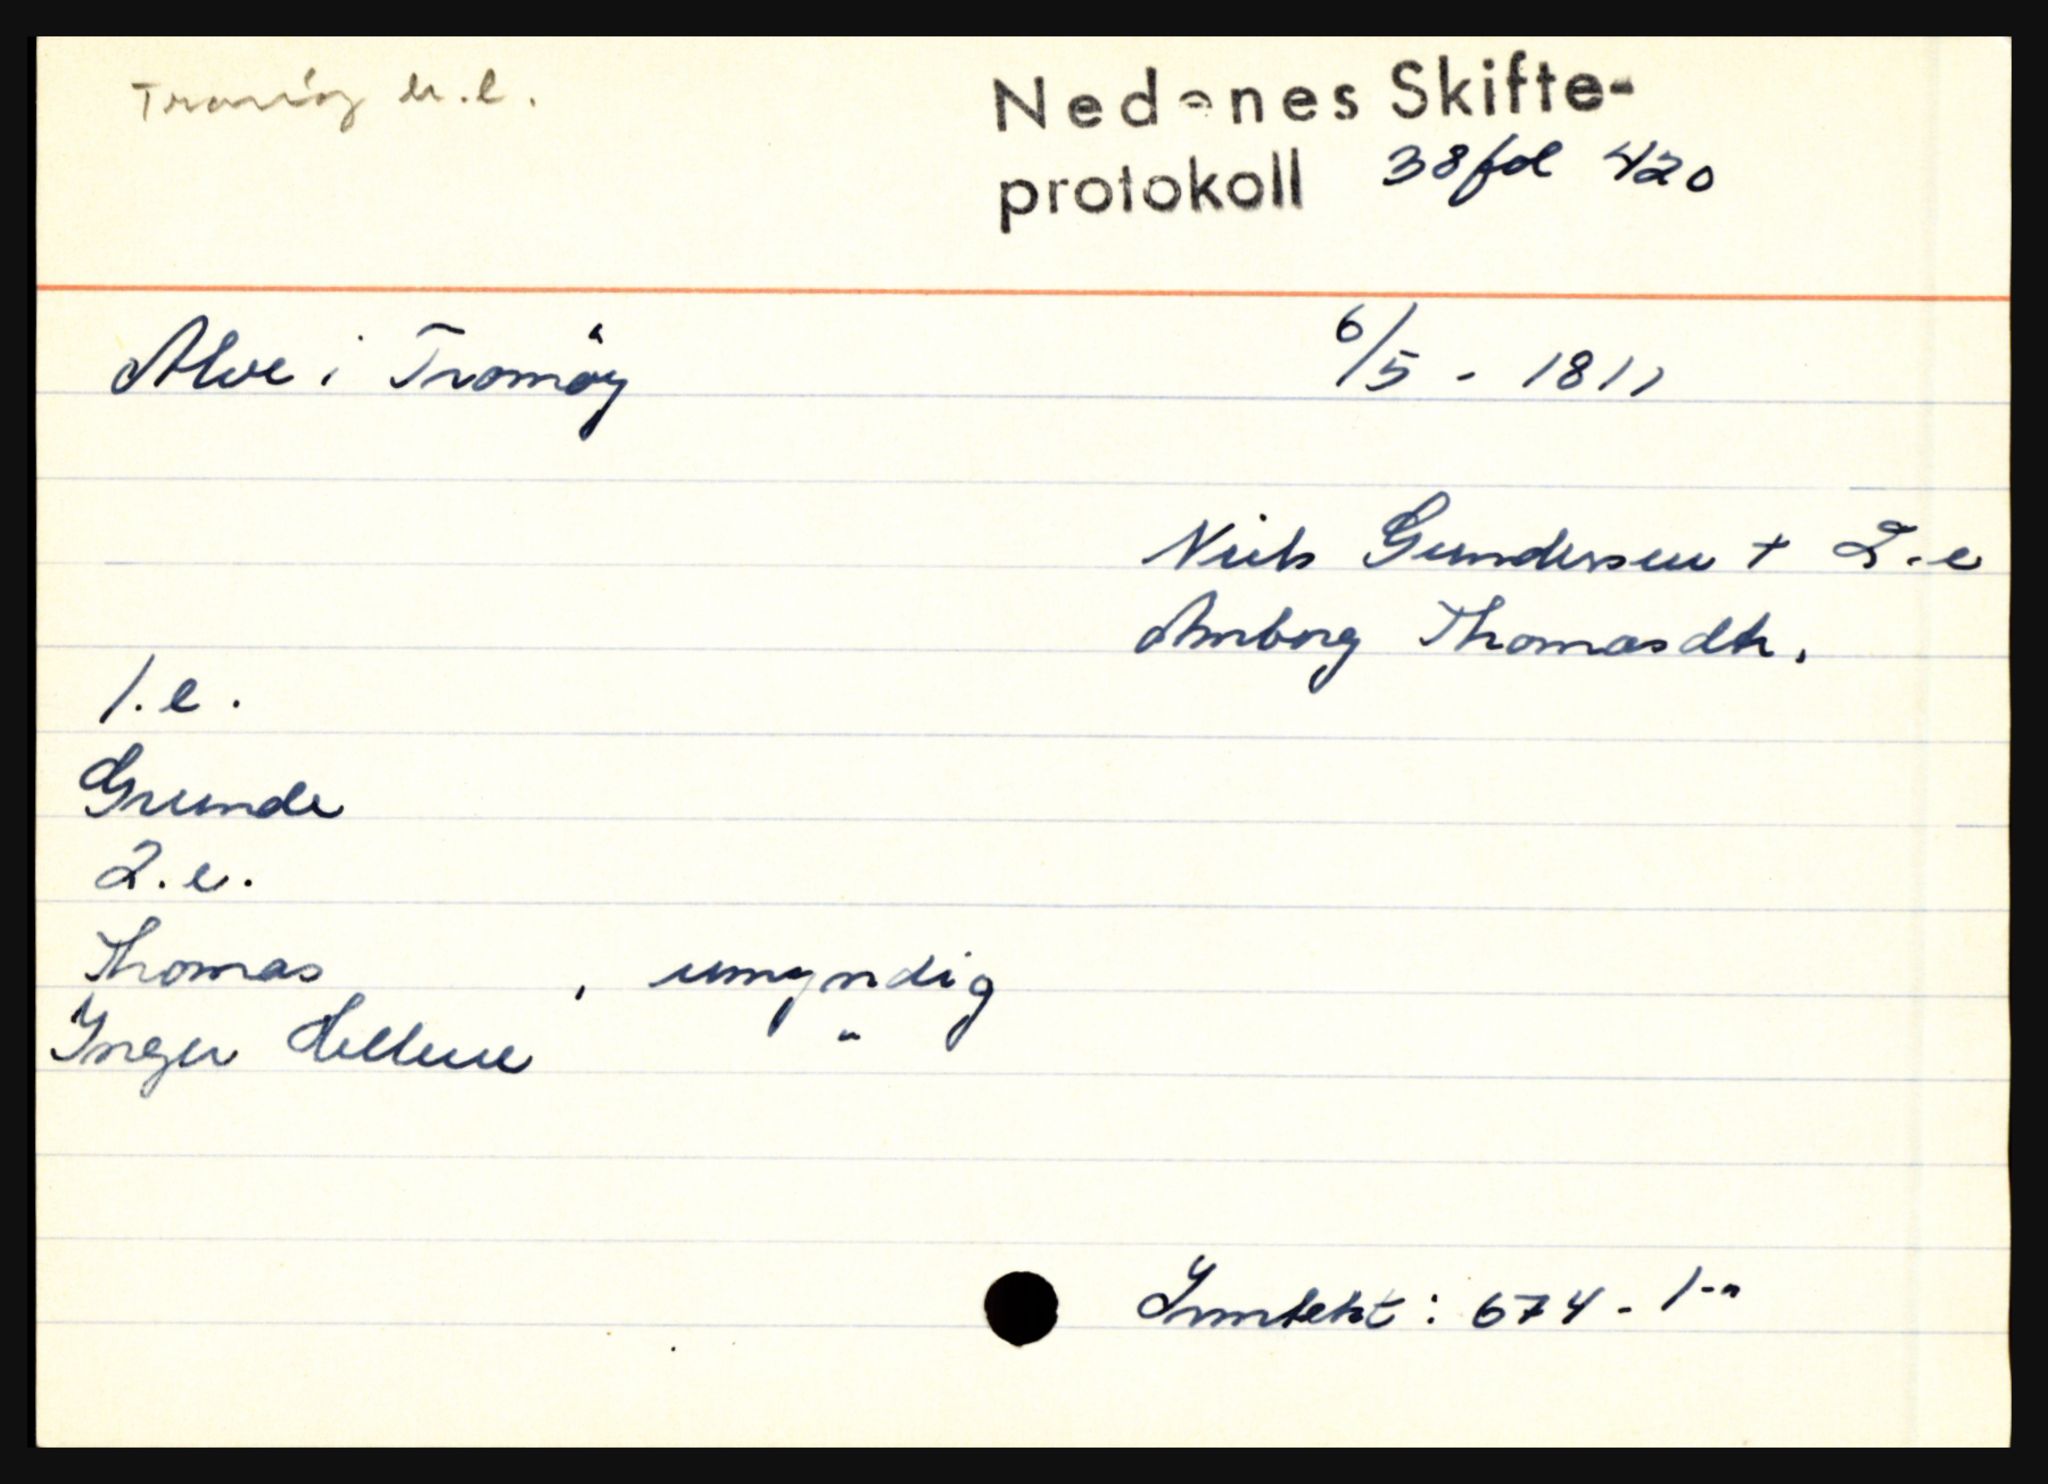 Tromöy
Nedenes Skifte-
protokoll 38 fol 420
Alve i Tromöy 6/5 - 1811
Niels Gundersen + 2.e
Amborg Thomasdtr.
1.e.
Grunde
2.e.
Thomas , umyndig
Inger Hellene "
Inntekt: 674 - 1 - "